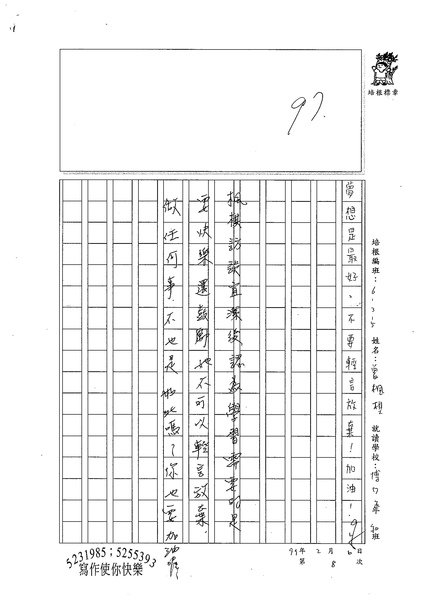 97.
培根標章
培根編班：6.2.5 姓名：曾楓 就讀學校：博 和班
夢想是最好、不要輕言放棄！加油！
楓棋訪談宜潔後認為學習需要的是
要快樂還鼓勵她不可以輕言放棄，
做任何事不也是如此嗎？你也要加油喔
99年2月6日
第8次
5231985；5255393
寫作使你快樂